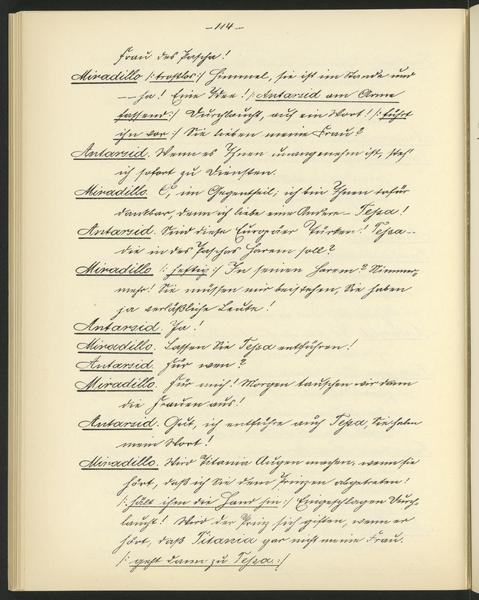 – 114 –
Frau des Pascha!
Miradillo /: trostlos :/ Himmel, sie ist im Stande und
– – ha! Eine Idee! /: Antarsid am Arme
fassend :/ Durchlaucht, auf ein Wort! /: führt
ihn vor :/ Sie lieben meine Frau?
Antarsid. Wenn es Ihnen unangenehm ist, steh'
ich sofort zu Diensten.
Miradillo. O, im Gegentheil; ich bin Ihnen dafür
dankbar, denn ich liebe eine Andere – Tessa!
Antarsid. Sind diese Türken! Tessa –
die in des Paschas Harem soll?
Miradillo /: heftig :/ In seinen Harem? Nimmer-
mehr! Sie müssen mir beistehen, Sie haben
ja verläßliche Leute!
Antarsid. Ja!
Miradillo. Lassen Sie Tessa entführen!
Antarsid. Für wen?
Miradillo. Für mich! Morgen tauschen wir dann
die Frauen aus!
Antarsid. Gut, ich entführe auch Tessa, Sie haben
mein Wort!
Miradillo. Wird Titania Augen machen, wenn sie
hört, daß ich Sie dem Prinzen abgetreten!
/: hält ihm die Hand hin :/ Eingeschlagen Durch-
laucht! Wird der Prinz sich giften, wenn er
hört, daß Titania gar nicht meine Frau.
/: geht dann zu Tessa :/